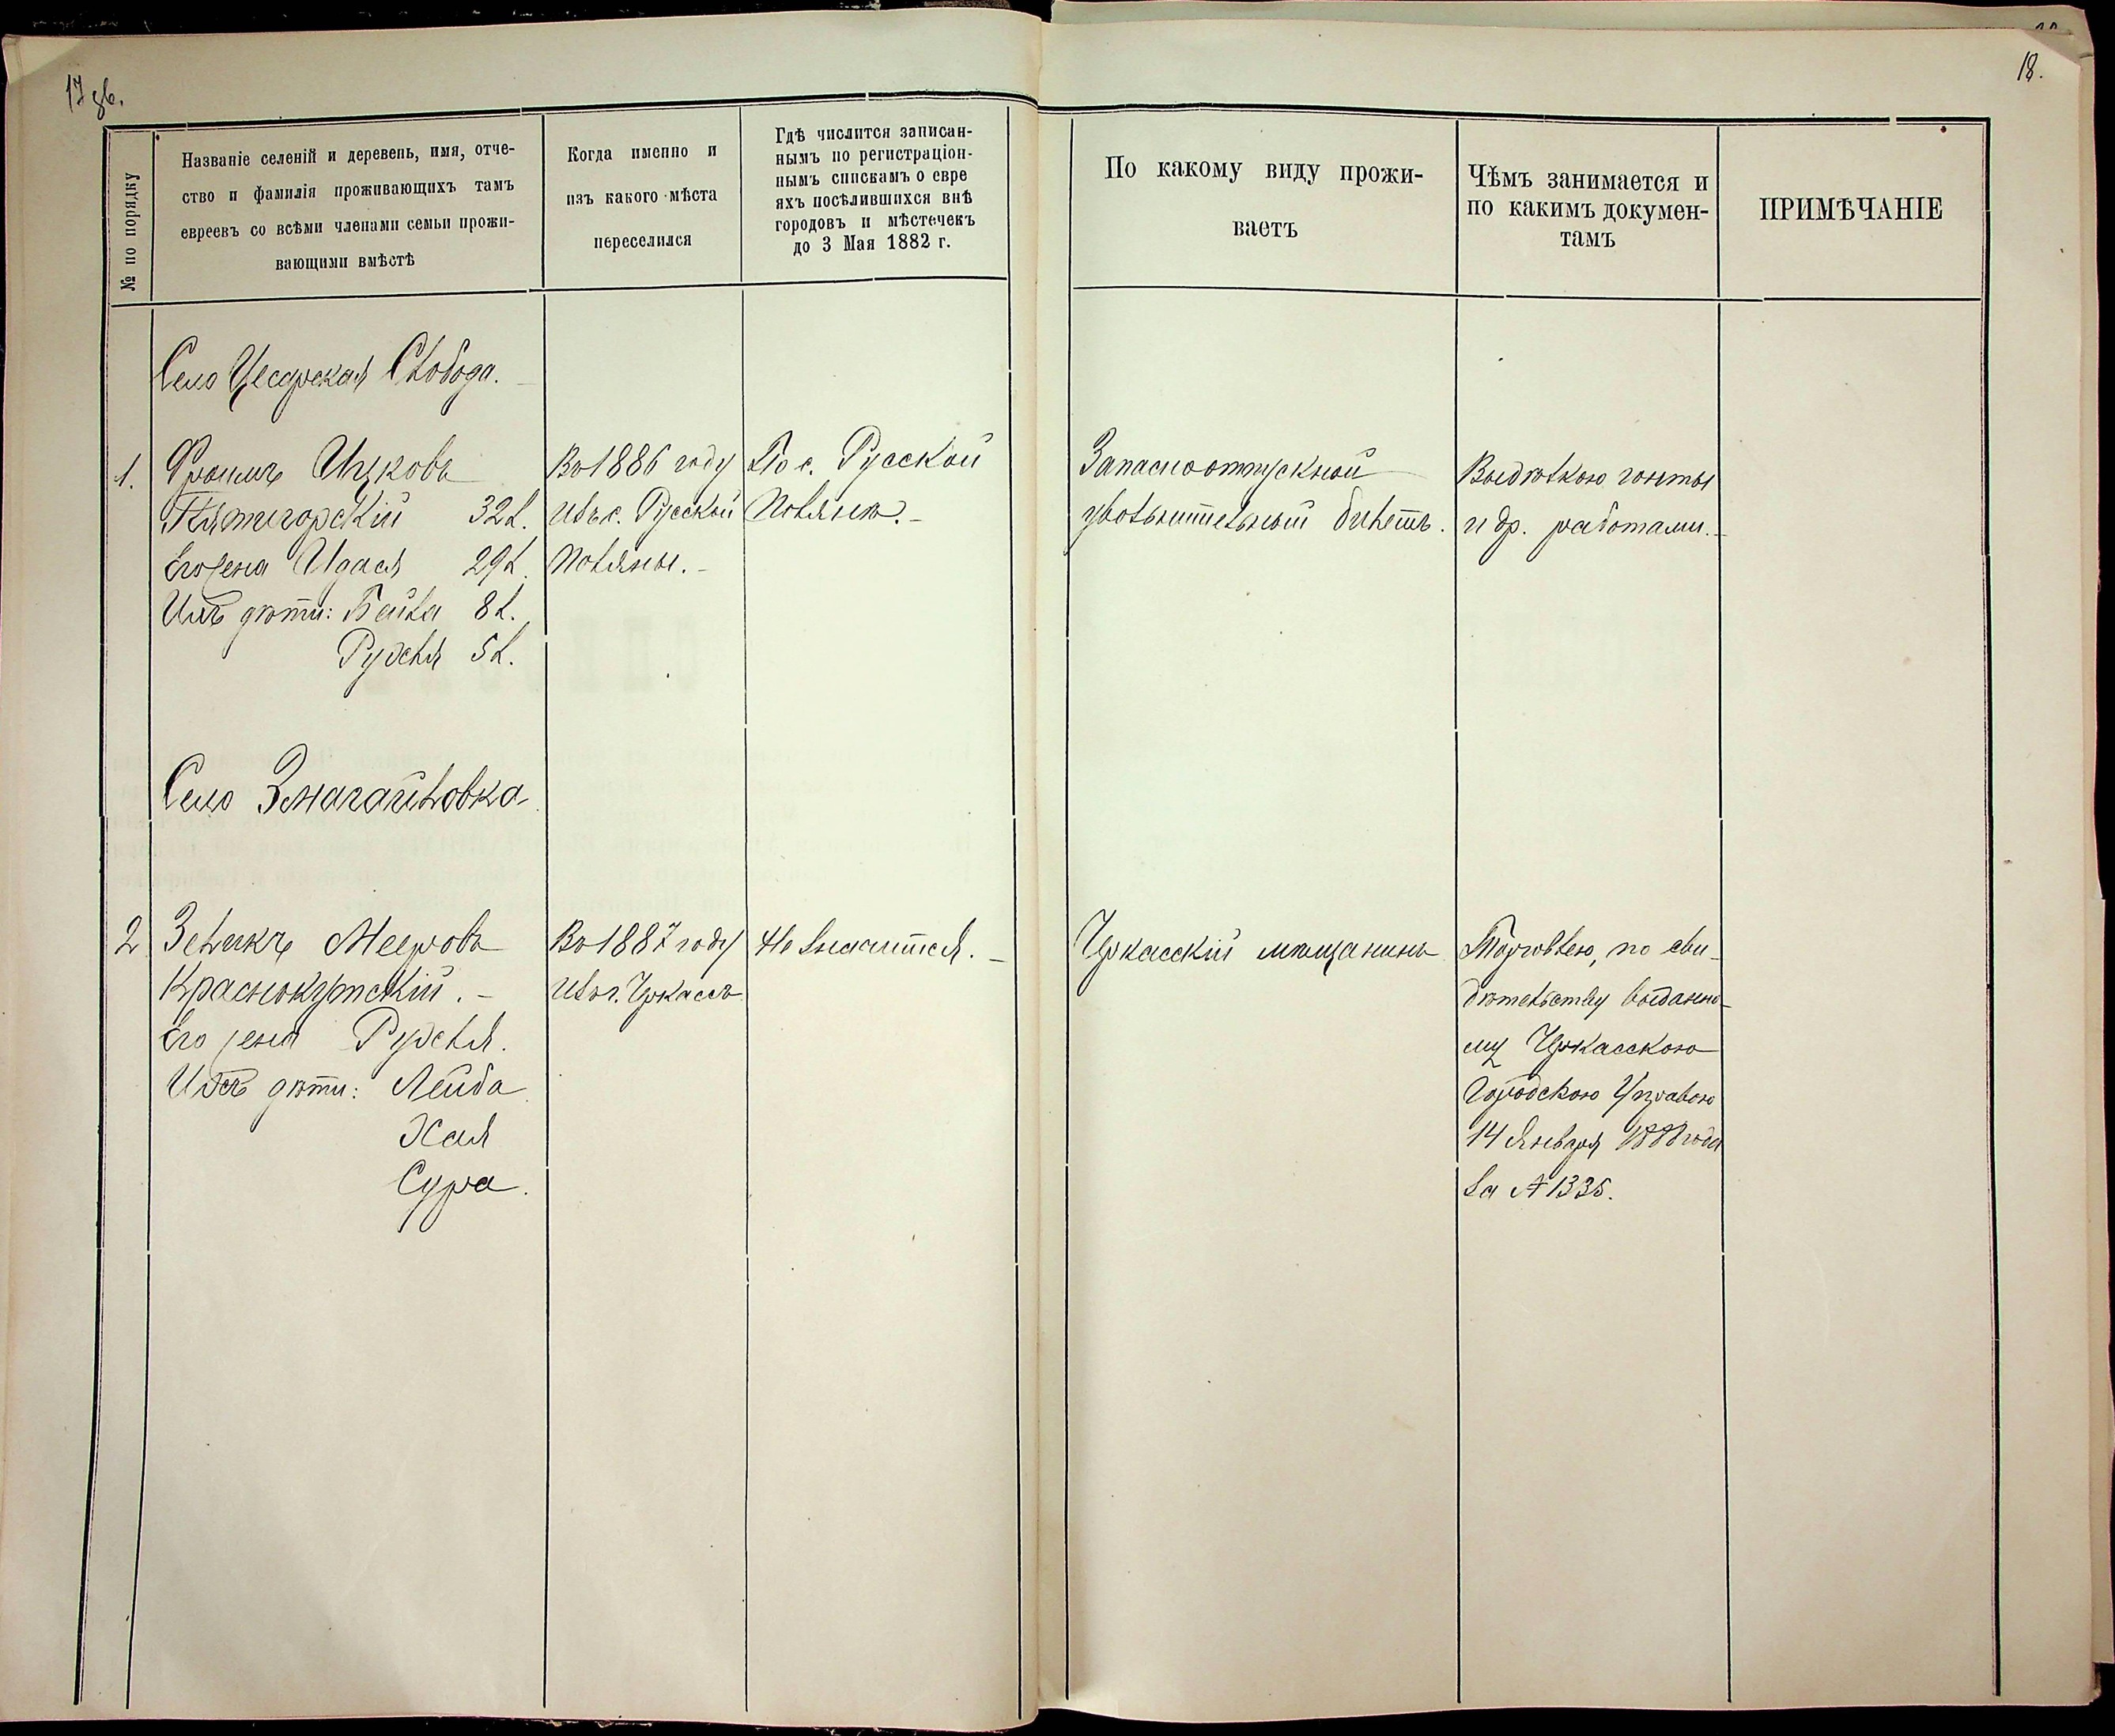 17 зв.
18.
№ по порядку
Названіе селеній и деревень, имя, отче-
ство и фамилія проживающихъ тамъ
евреевъ со всѣми членами семьи прожи-
вающими вмѣстѣ
Когда именно и
изъ какого мѣста
переселился
Гдѣ числится записан-
нымъ по регистраціон-
нымъ спискамъ о евре
яхъ посѣлившихся внѣ
городовъ и мѣстечекъ
до 3 Мая 1882 г.
По какому виду прожи-
ваетъ
Чѣмъ занимается и
по какимъ докумен-
тамъ
ПРИМѢЧАНІЕ
Село Цесарская Слобода.
1.
Фроимъ Ицковъ
Пятигорскій 32 л.
Его жена Идася 29 л.
Ихъ дѣти: Бейла 8 л.
Рухля 5 л.
Въ 1886 году
изъ с. Русской
Поляны.
По с. Русской
Полянѣ.
Запасноотпускной
увольнительный билетъ.
Выдѣлкою гонты
и др. работами.
Село Змагайловка
2
Зеликъ Мееровъ
Краснокутскій.
Его жена Рухля.
Ихъ дѣти: Лейба
Хая
Сура.
Въ 1887 году
изъ г. Черкассъ
Не значится.
Черкасскій мѣщанинъ
Торговлею, по сви-
дѣтельству выданно-
му Черкасскою
Городскою Управою
14 Января 1888 года
за № 1335.